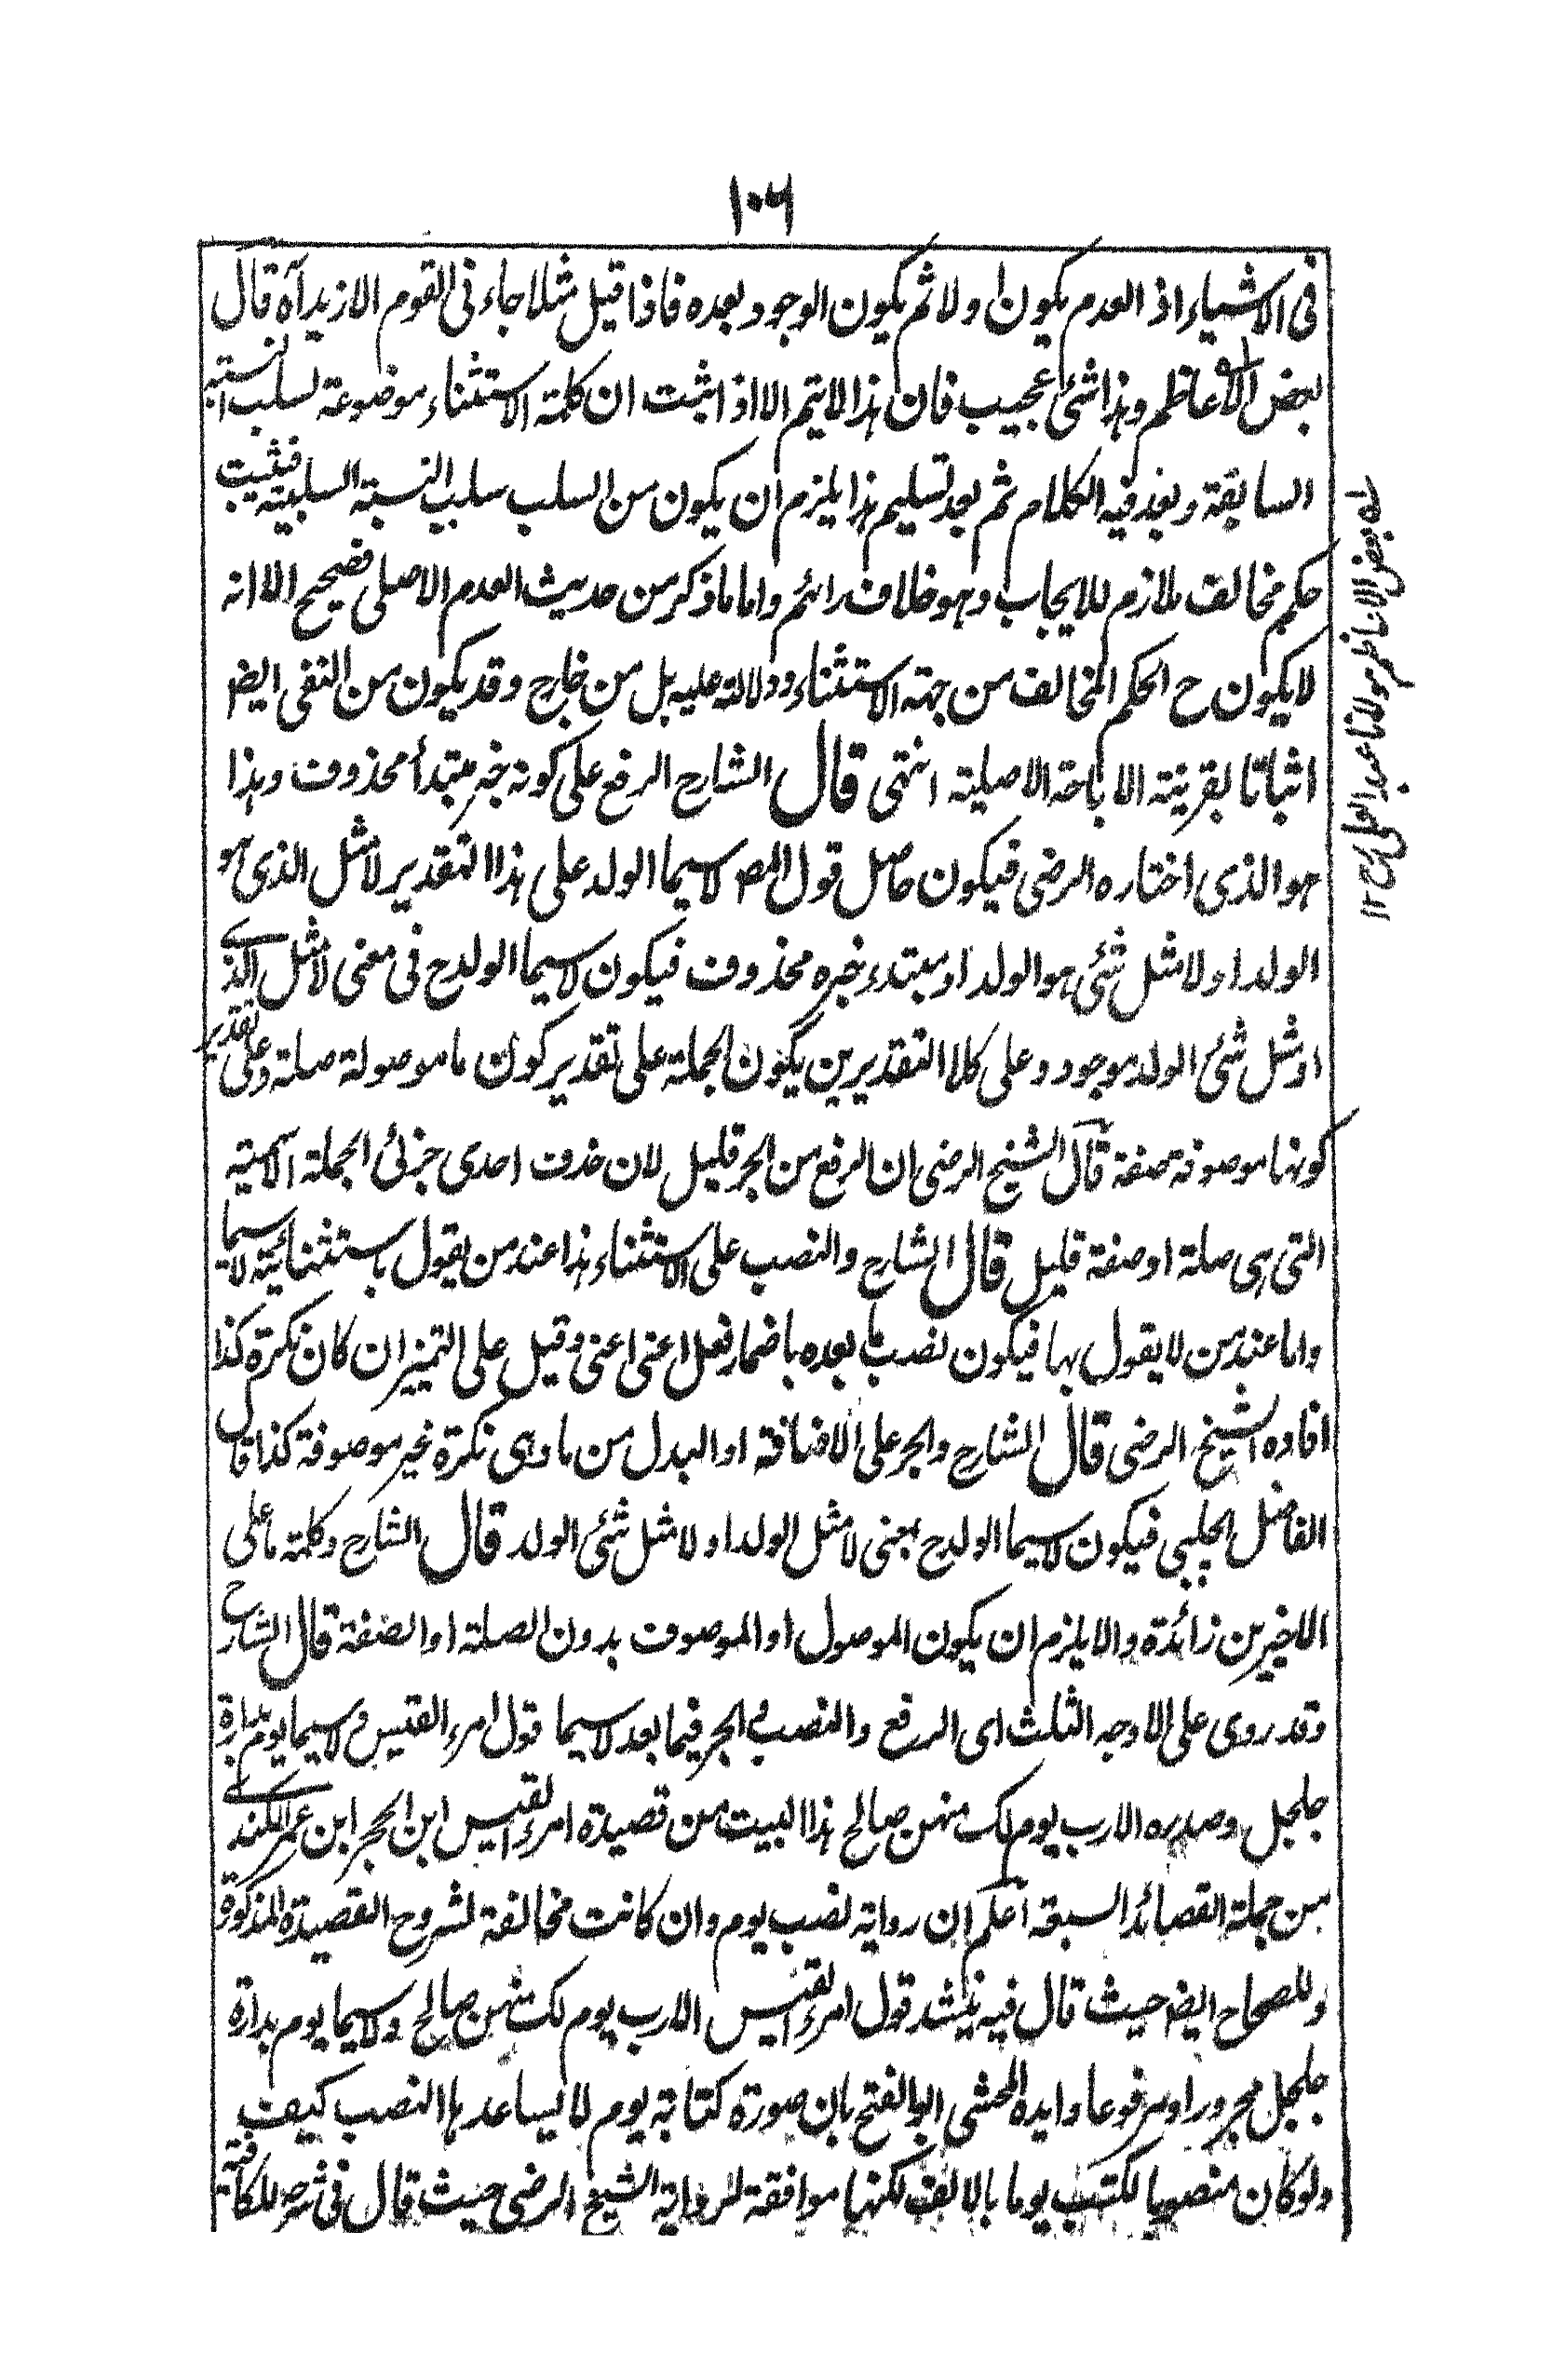 ١٠٦
فى الاشياء اذ العدم يكون اولا ثم يكون الوجود بعده فاذا قيل مثلا جاءنى القوم الا زيدا آه قال
بعض الاعاظم وهذا شئ عجيب فان هذا لا يتم الا اذا ثبت ان كلمة الاستثناء موضوعة لسلب النسبة
السابقة وبعد فيه الكلام ثم بعد تسليم هذا يلزم ان يكون من السلب سلب النسبة السلبية فيثبت
حكم مخالف ملازم للايجاب وهو خلاف رائهم واما ما ذكر من حديث العدم الاصلى فصحيح الا انه
لا يكون ح الحكم المخالف من جهة الاستثناء ودلالة عليه بل من خارج وقد يكون من النفى ايضا
اثباتا بقرينة الاباحة الاصلية انتهى قال الشارح الرفع على كونه خبر مبتدأ محذوف وهذا
هو الذى اختاره الرضى فيكون حاصل قول المص لا سيما الولد على هذا التقدير لا مثل الذى هو
الولد او لا مثل شئ هو الولد او مبتدء خبره محذوف فيكون لا سيما الولد ح فى معنى لا مثل الذى
او مثل شئ الولد موجود وعلى كلا التقديرين يكون الجملة على تقدير كون ما موصولة صلة وعلى تقدير
كونها موصوفة صفة قال الشيخ الرضى ان الرفع من الجر قليل لان حذف احدى جزئى الجملة الاسمية
التى هى صلة او صفة قليل قال الشارح والنصب على الاستثناء هذا عند من يقول باستثنائية لا سيما
واما عند من لا يقول بها فيكون نصب ما بعده باضمار فعل اعنى اعنى وقيل على التميز ان كان نكرة كذا
افاده الشيخ الرضى قال الشارح والجر على الاضافة او البدل من ما وهى نكرة غير موصوفة كذا قال
الفاضل الجلبى فيكون لا سيما الولد ح بمعنى لا مثل الولد او لا مثل شئ الولد قال الشارح وكلمة ما على
الاخيرين زائدة والا يلزم ان يكون الموصول او الموصوف بدون الصلة او الصفة قال الشارح
وقد روى على الاوجه الثلث اى الرفع والنصب والجر فيما بعد لا سيما قول امرء القيس ع ولا سيما يوم بدارة
جلجل وصدره الا رب يوم لك منهن صالح هذا البيت من قصيدة امرء القيس ابن الحجر ابن عمر الكندى
من جملة القصائد السبعة اعلم ان رواية نصب يوم وان كانت مخالفة لشروح القصيدة المذكورة
وللصحاح ايضا حيث قال فيه ينشد قول امرء القيس الا رب يوم لك منهن صالح ولا سيما يوم بدارة
جلجل مجرورا ومرفوعا وايده المحشى ابو الفتح بان صورة كتابة يوم لا يساعدها النصب كيف
ولو كان منصوبا لكتب يوما بالالف لكنها موافقة لرواية الشيخ الرضى حيث قال فى شرحه للكافية
له بعض الاناظر مولانا عبد العلى رح ١٢